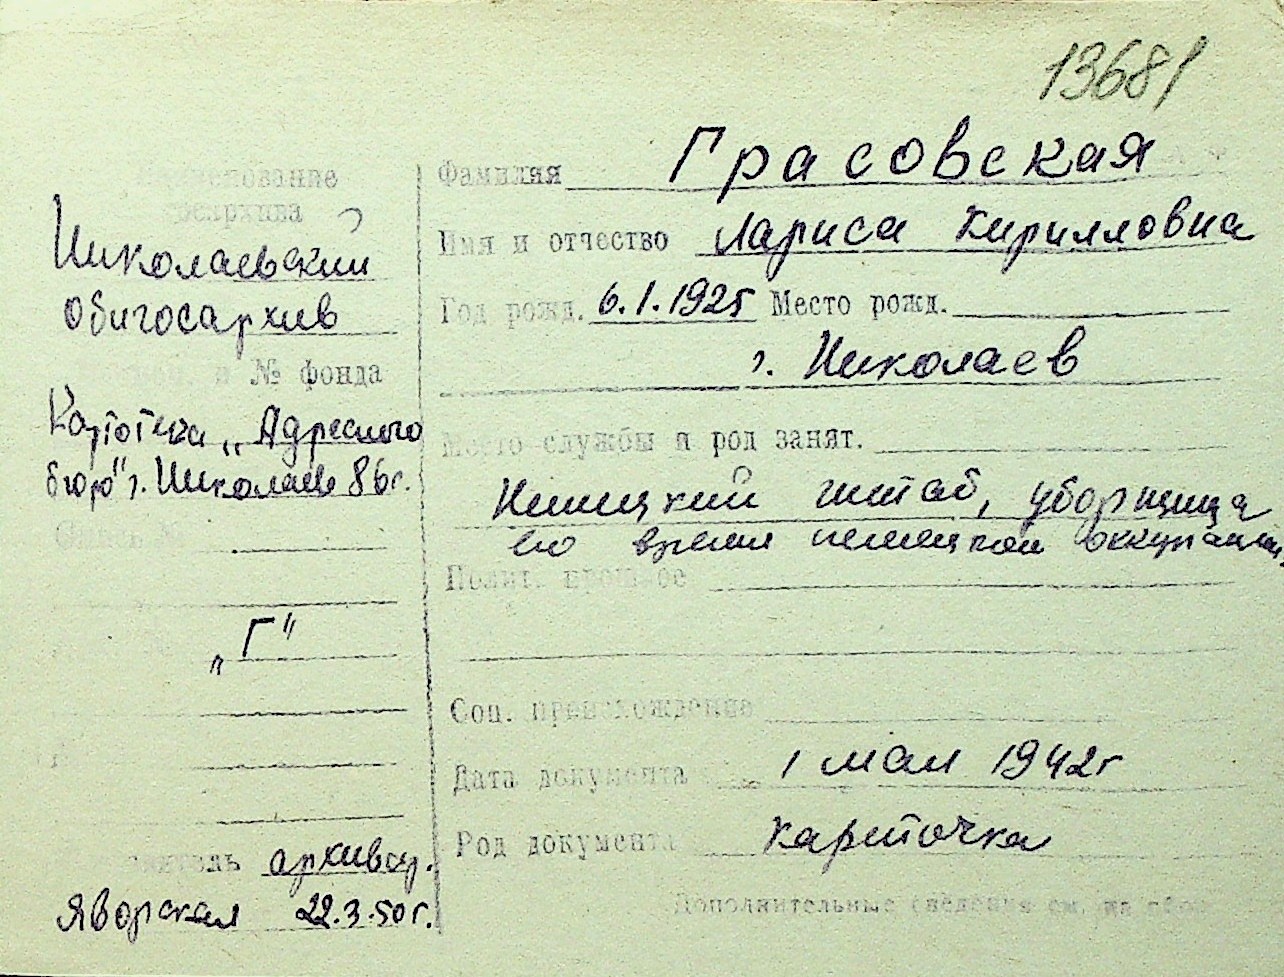 13681
Наименование
госархива
Николаевский
Облгосархив
№ фонда
Картотека „Адресного
бюро" г. Николаев 86г.
Опись №
„Г"
архивар.
Яворская 22.3.50г.
Фамилия Грасовская
Имя и отчество Лариса Кирилловна
Год рожд. 6.1.1925 Место рожд.
г. Николаев
Место службы и род занят.
Немецкий штаб, уборщица
во время немецкой оккупации,
Полит. прошлое
Соц. происхождение
Дата документа 1 мая 1942г
Род документа карточка
Дополнительные сведения см. на обор